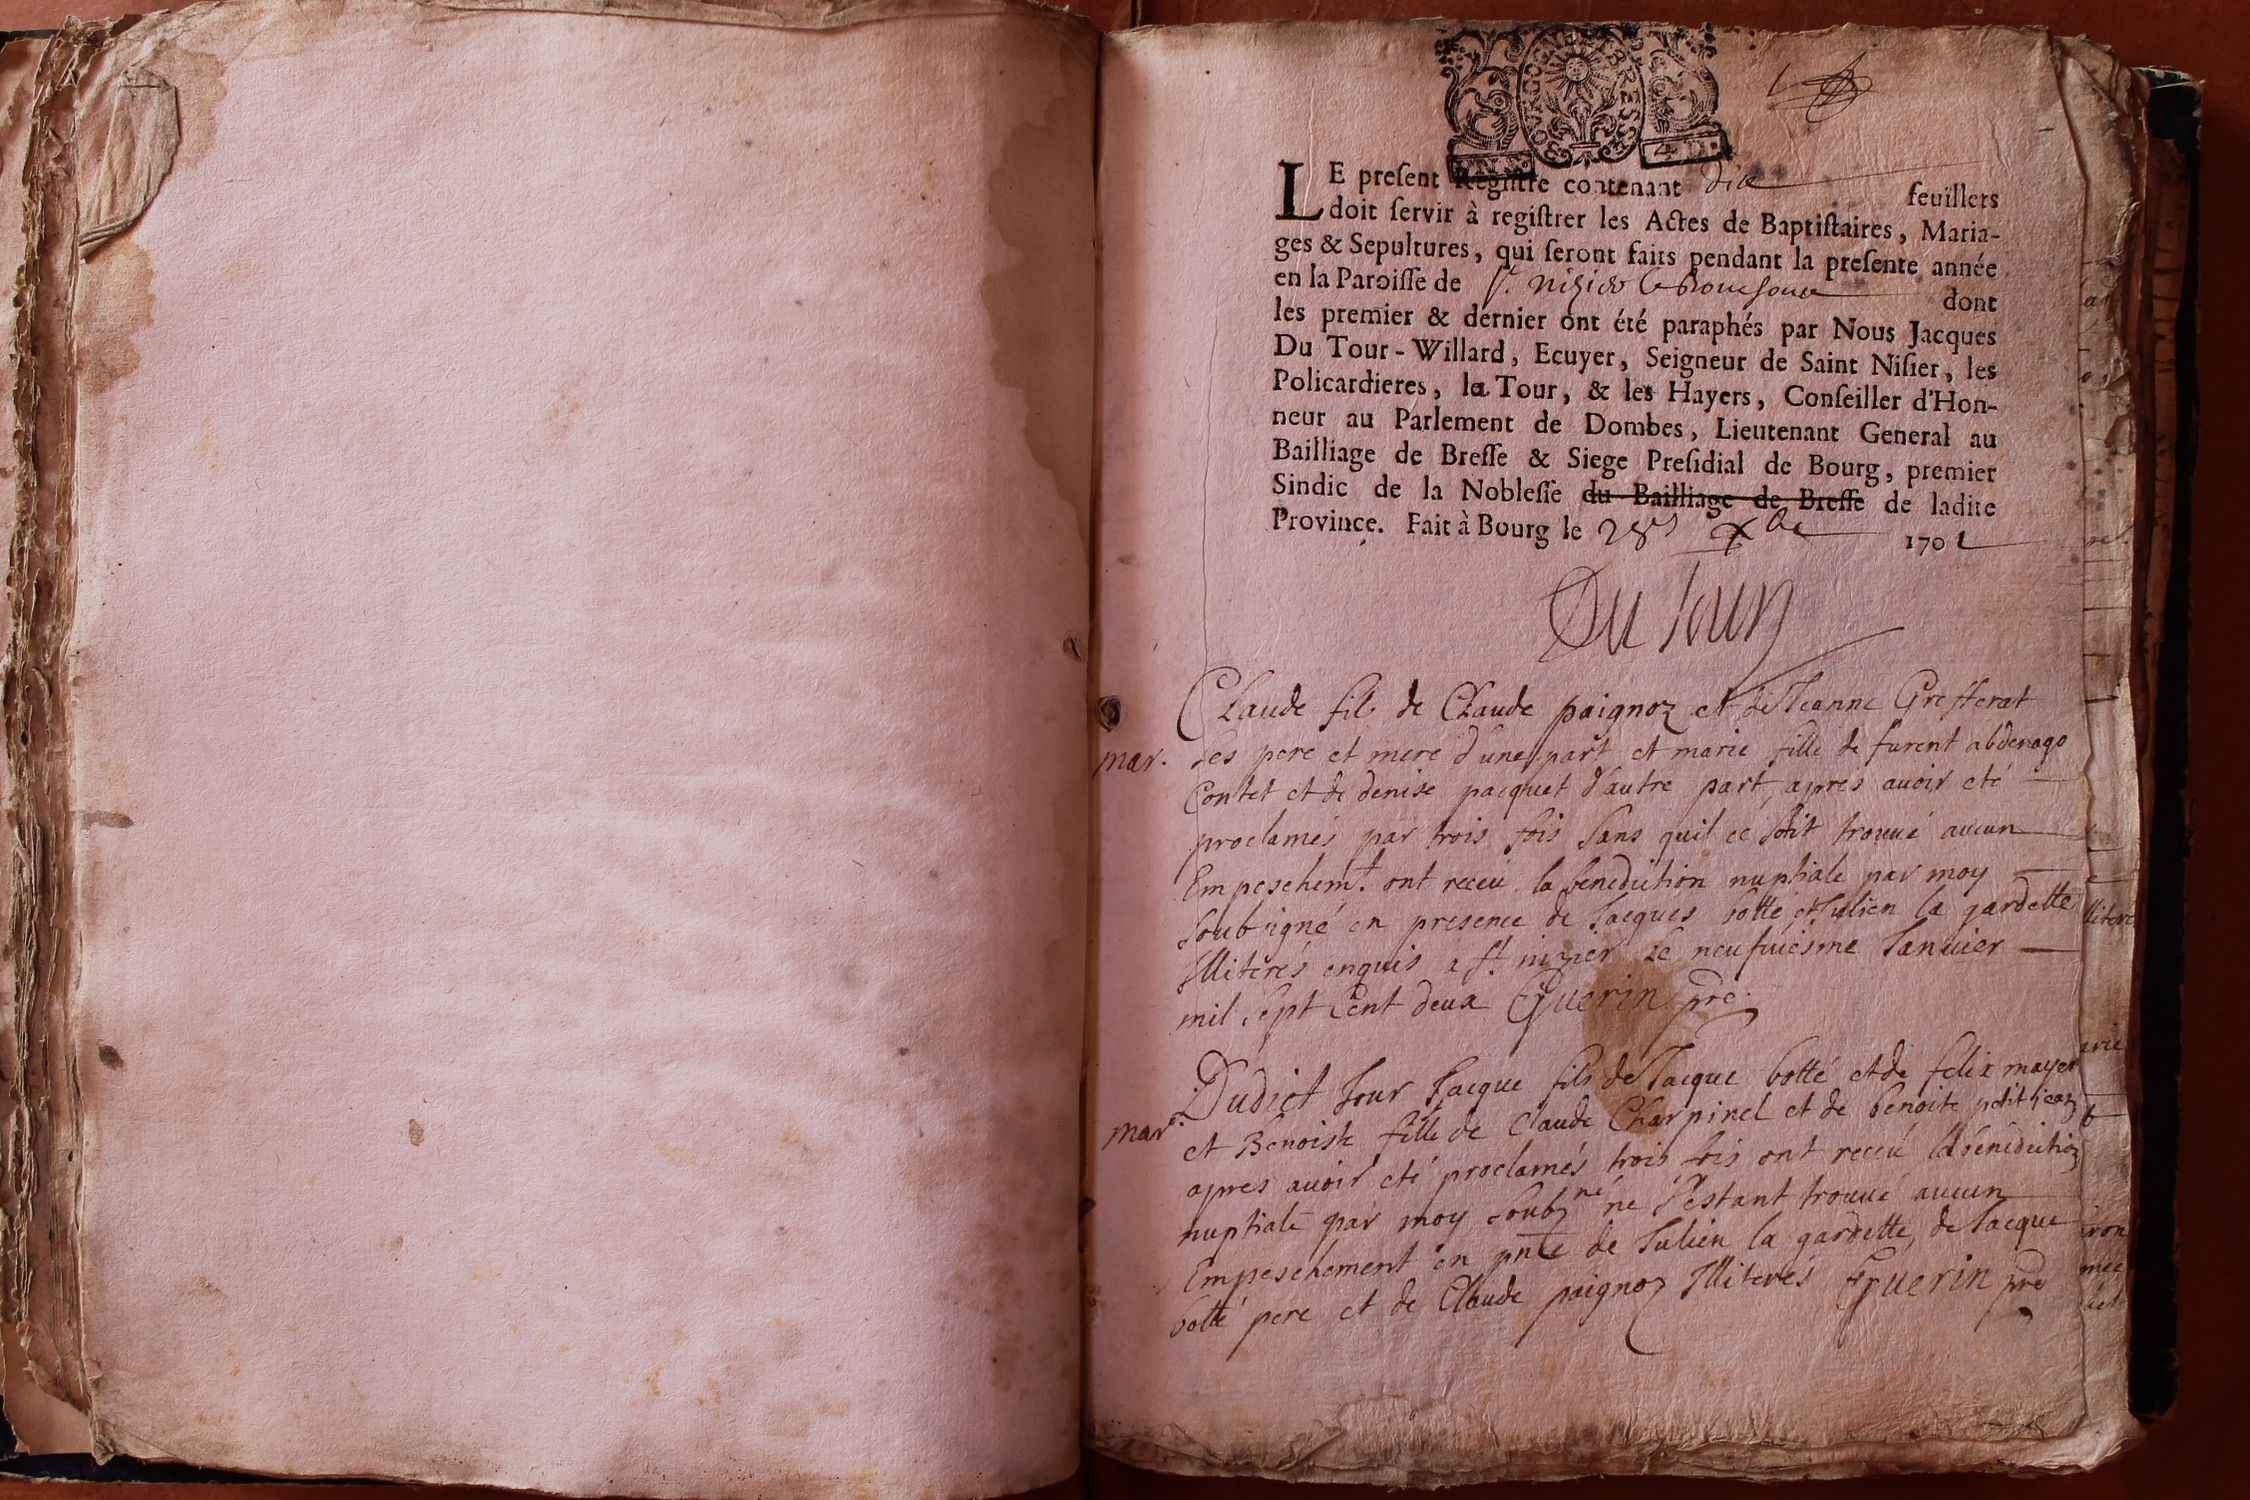 BOURGOGNE BRESSE
LE preſent Regiſtre contenant dix feuillers
doit ſervir à regiſtrer les Actes de Baptiſtaires, Maria-
ges & Sepultures, qui ſeront faits pendant la preſente année
en la Paroiſſe de St. nizier le Bouchoux dont
les premier & dernier ont été paraphés par Nous Jacques
Du Tour-Willard, Ecuyer, Seigneur de Saint Niſier, les
Policardieres, la Tour, & les Hayers, Conſeiller d'Hon-
neur au Parlement de Dombes, Lieutenant General au
Bailliage de Breſſe & Siege Preſidial de Bourg, premier
Sindic de la Nobleſſe du Bailliage de Breſſe de ladite
Province. Fait à Bourg le 28 xbre 1701
Du Tour
Claude fils de Claude paignoz et de Jeanne Grefferat
mar. ses pere et mere d'une part et marie fille de furent abdenago
Contet et de denise pacquet d'autre part, apres avoir eté
proclamés par trois fois sans quil ce soit trouué aucun
Empeschemt. ont receu la benediction nuptiale par moy
soubsigné en presence de Jacques botte et Julien la gardette
Illiterés enquis a St nizier le neufuiesme Januier
mil sept cent deux Guerin pre.
Dudict Jour Jacque fils de Jacque botté et de felix mayer
mar. et Benoiste fille de Claude Charpinel et de benoite petit jean
apres auoir eté proclamés trois fois ont receu la benediction
nuptiale par moy soubzné ne s'estant trouué aucun
Empeschement en pnce de Julien la gardette, de Jacque
botté pere et de Claude paignoz Illiterés Guerin pre